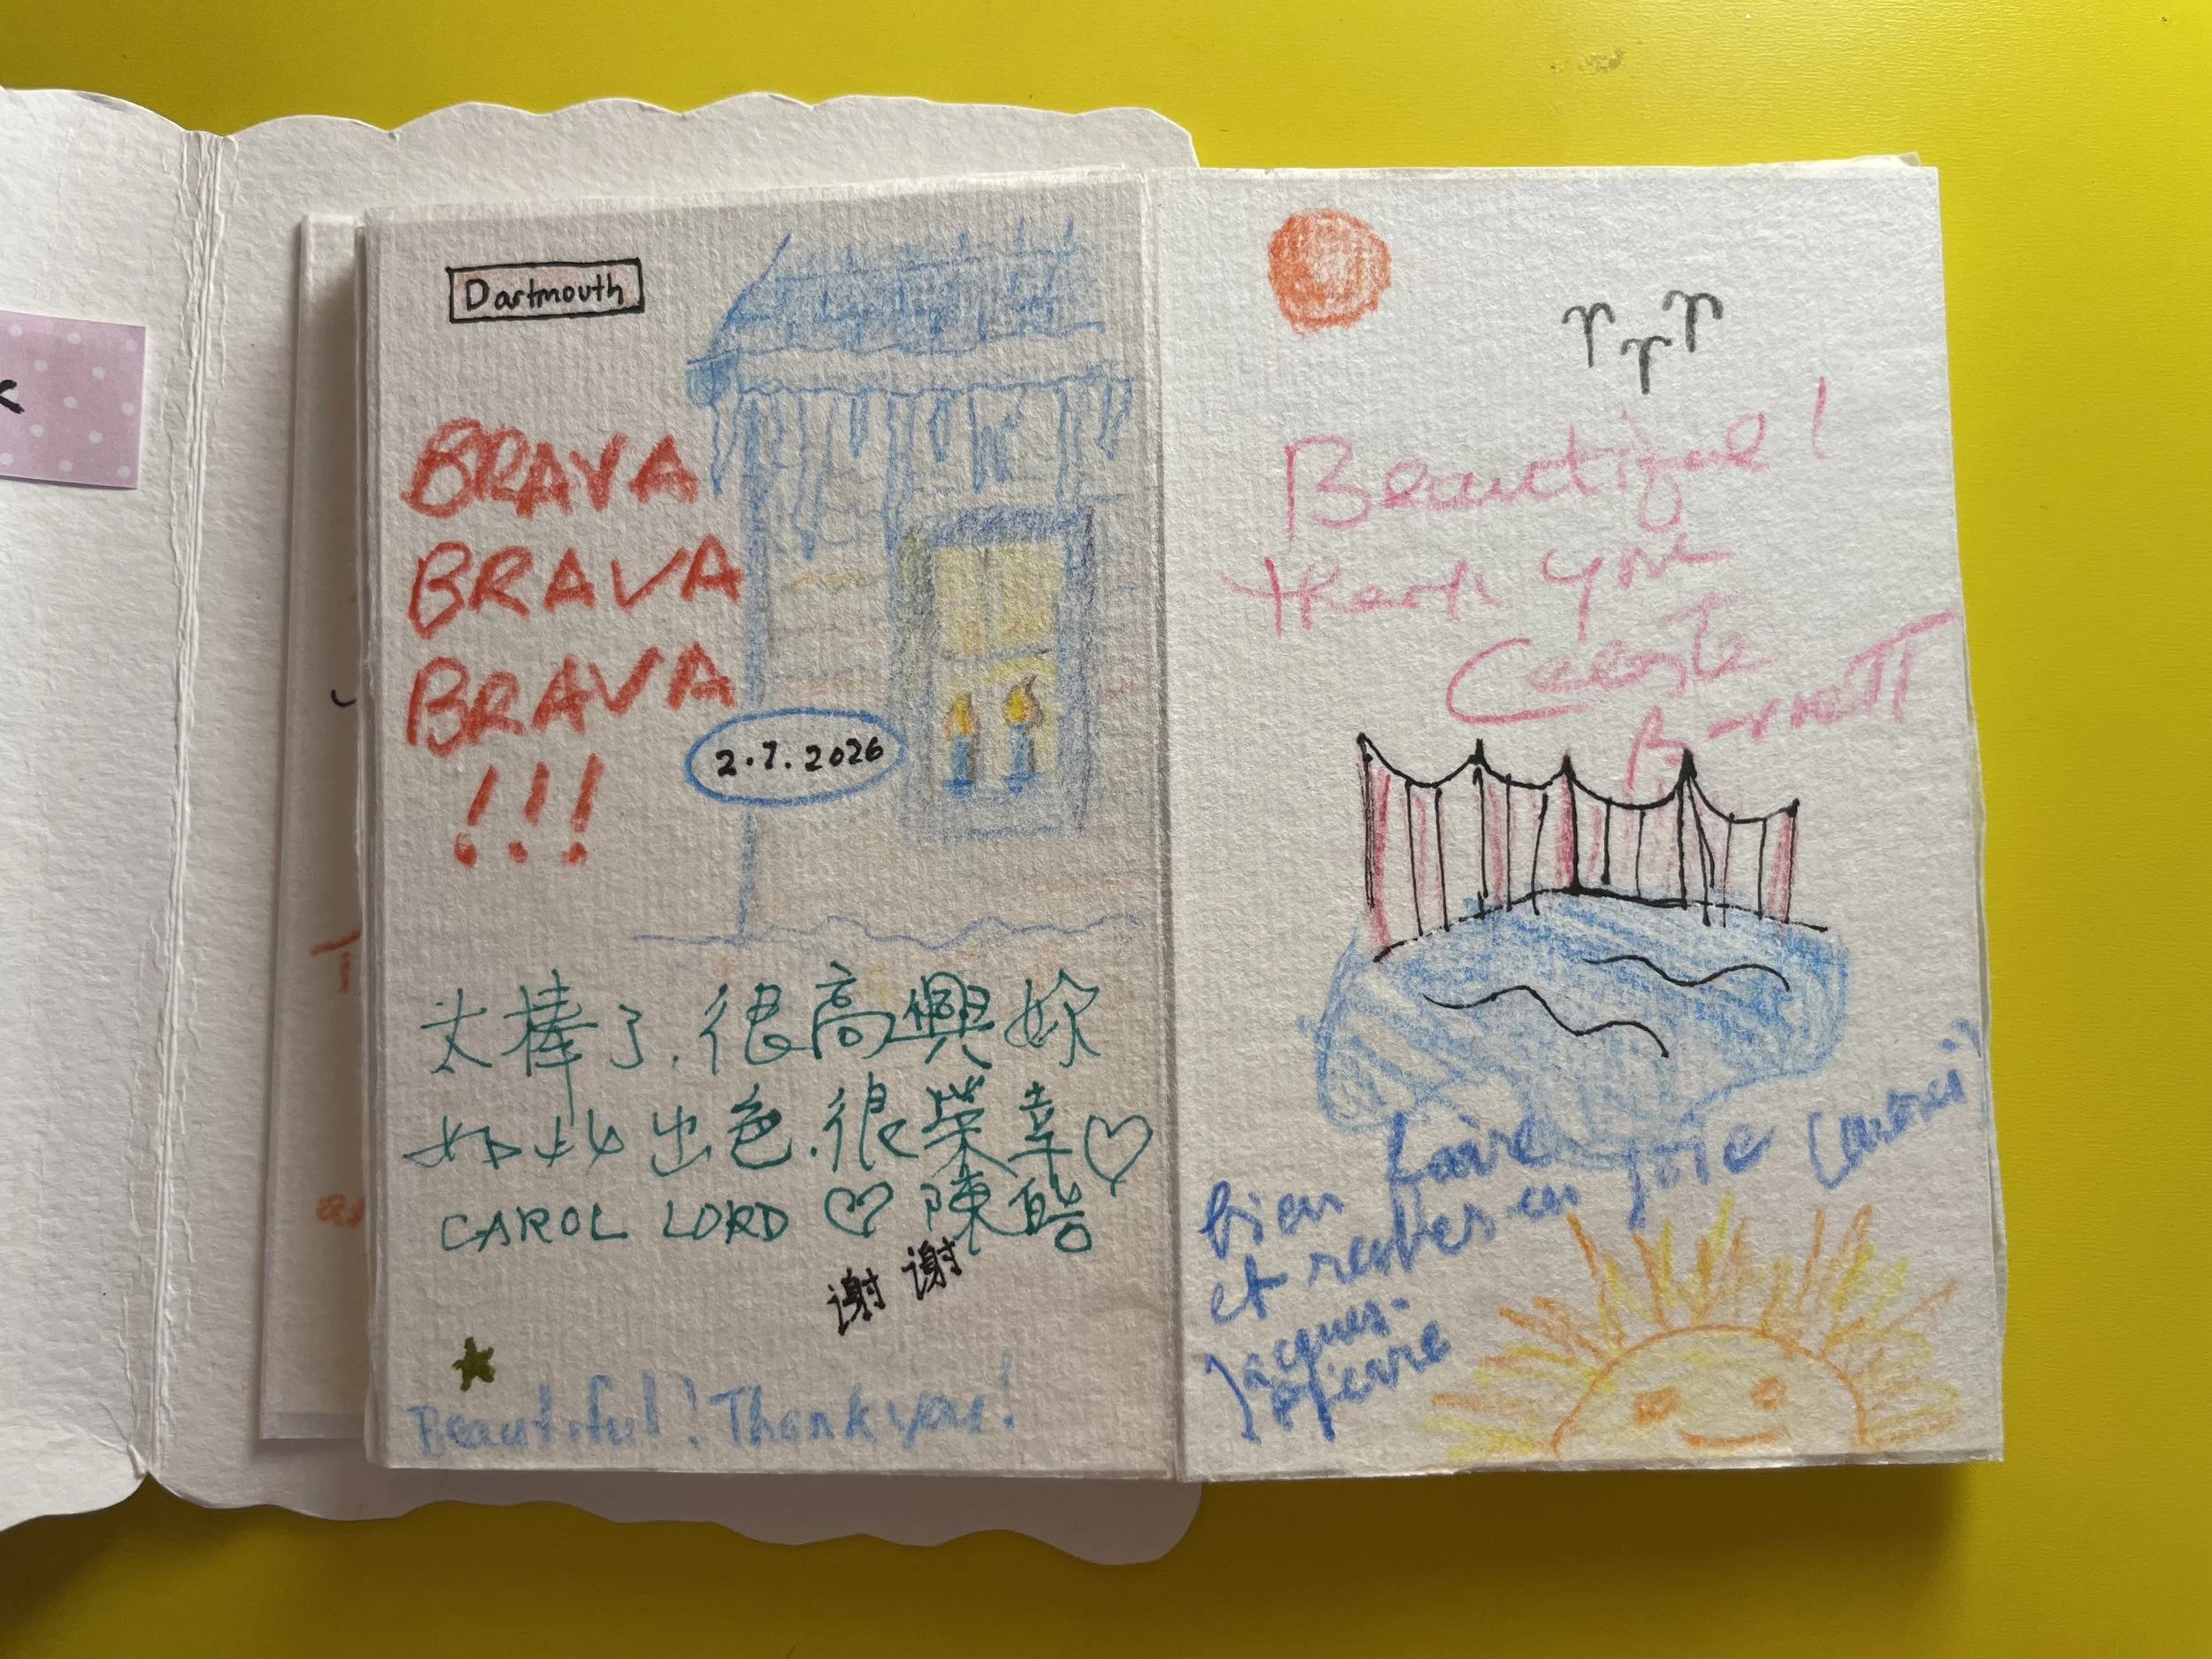 Dartmouth
BRAVA
BRAVA
BRAVA
!!!
2.7.2026
太棒了.很高興妳
如此出色.很榮幸♡
CAROL LORD ♡ 陳皓
谢谢
Beautiful! Thank you!
Beautiful!
thank you
Celeste
Barnett
bien faire
et rester en joie
Jacques-
Pierre